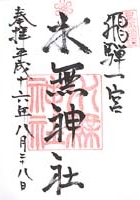 飛騨一宮
水無神社
奉拝平成十六年八月二十八日